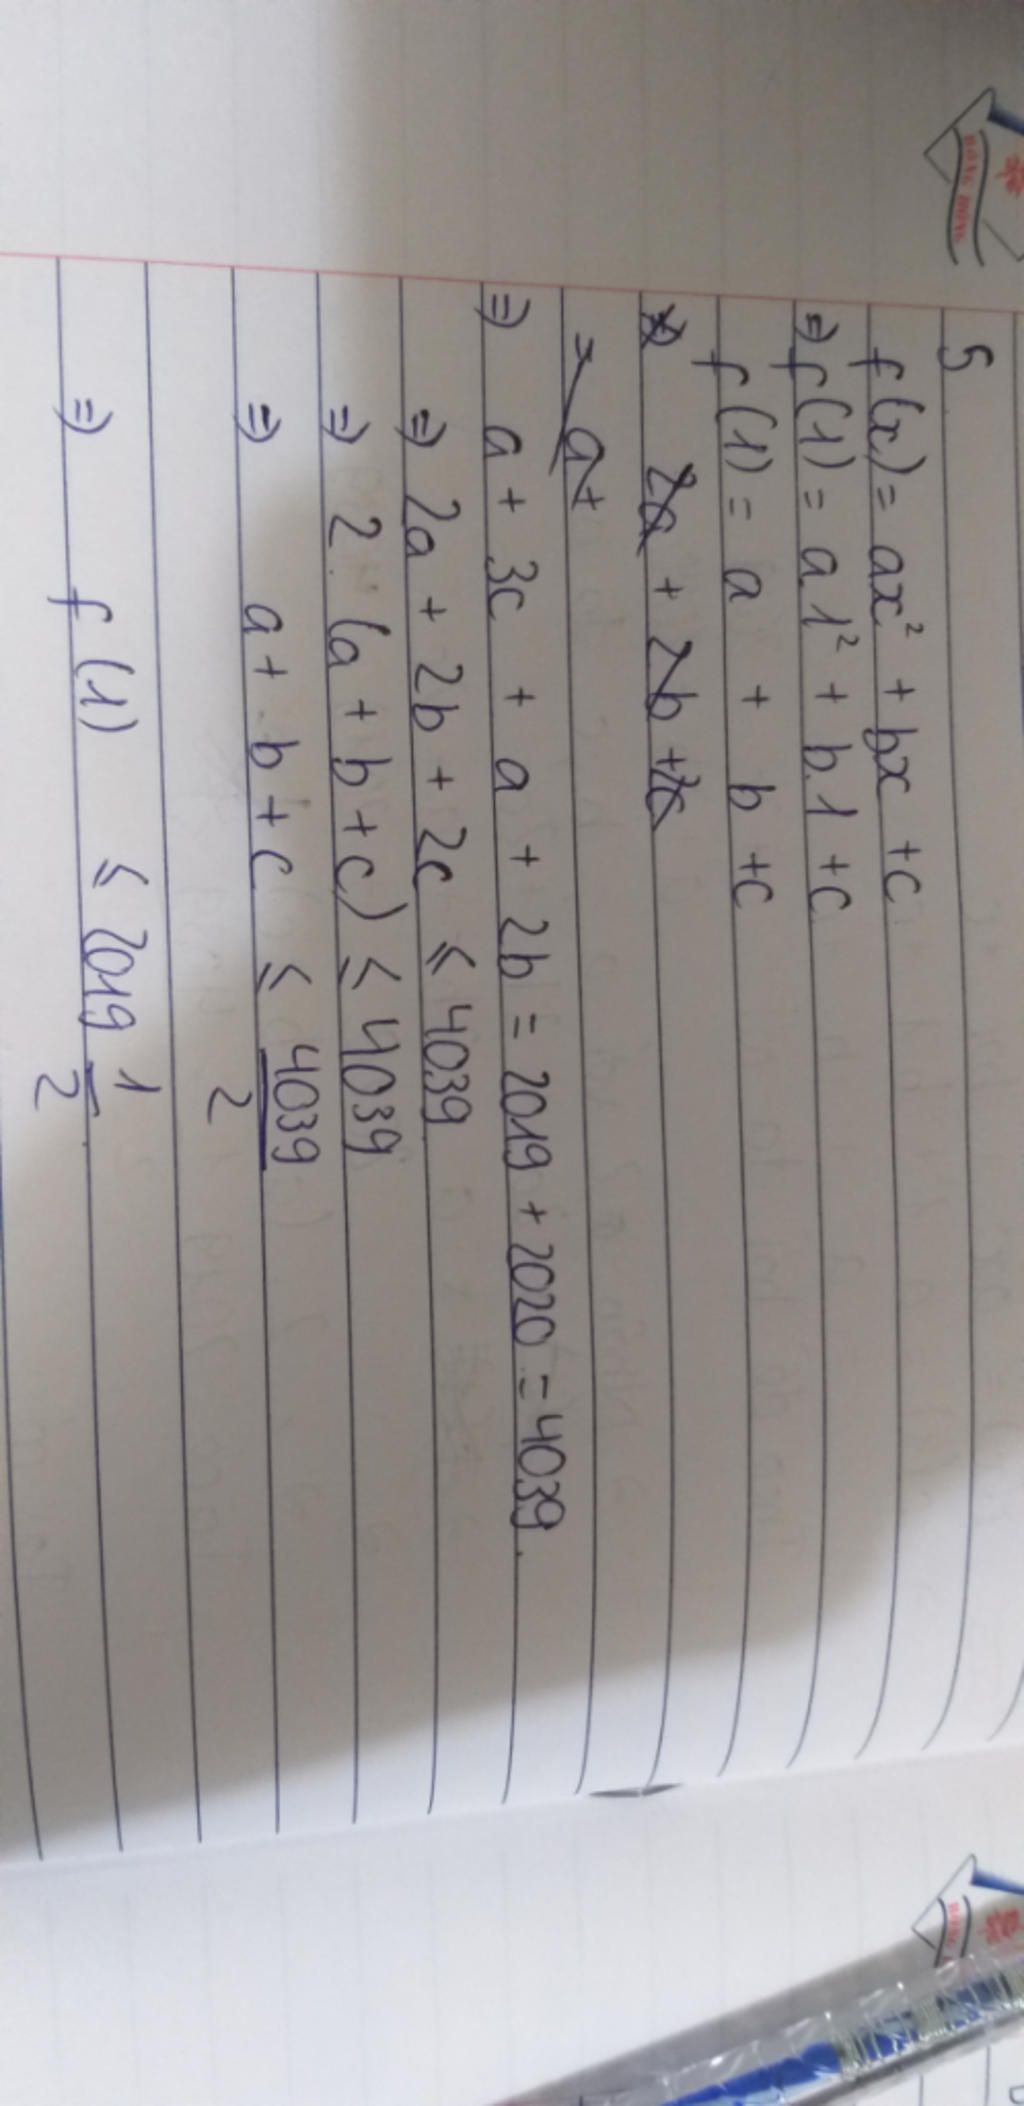 5
f(x) = ax² + bx + c
⇒ f(1) = a1² + b.1 + c
f(1) = a + b + c
⇒ 2a + 2b + 2c
= a+
⇒ a + 3c + a + 2b = 2019 + 2020 = 4039.
⇒ 2a + 2b + 2c ≤ 4039
⇒ 2.(a + b + c) ≤ 4039
⇒ a + b + c ≤ 4039/2
⇒ f(1) ≤ 2019 1/2